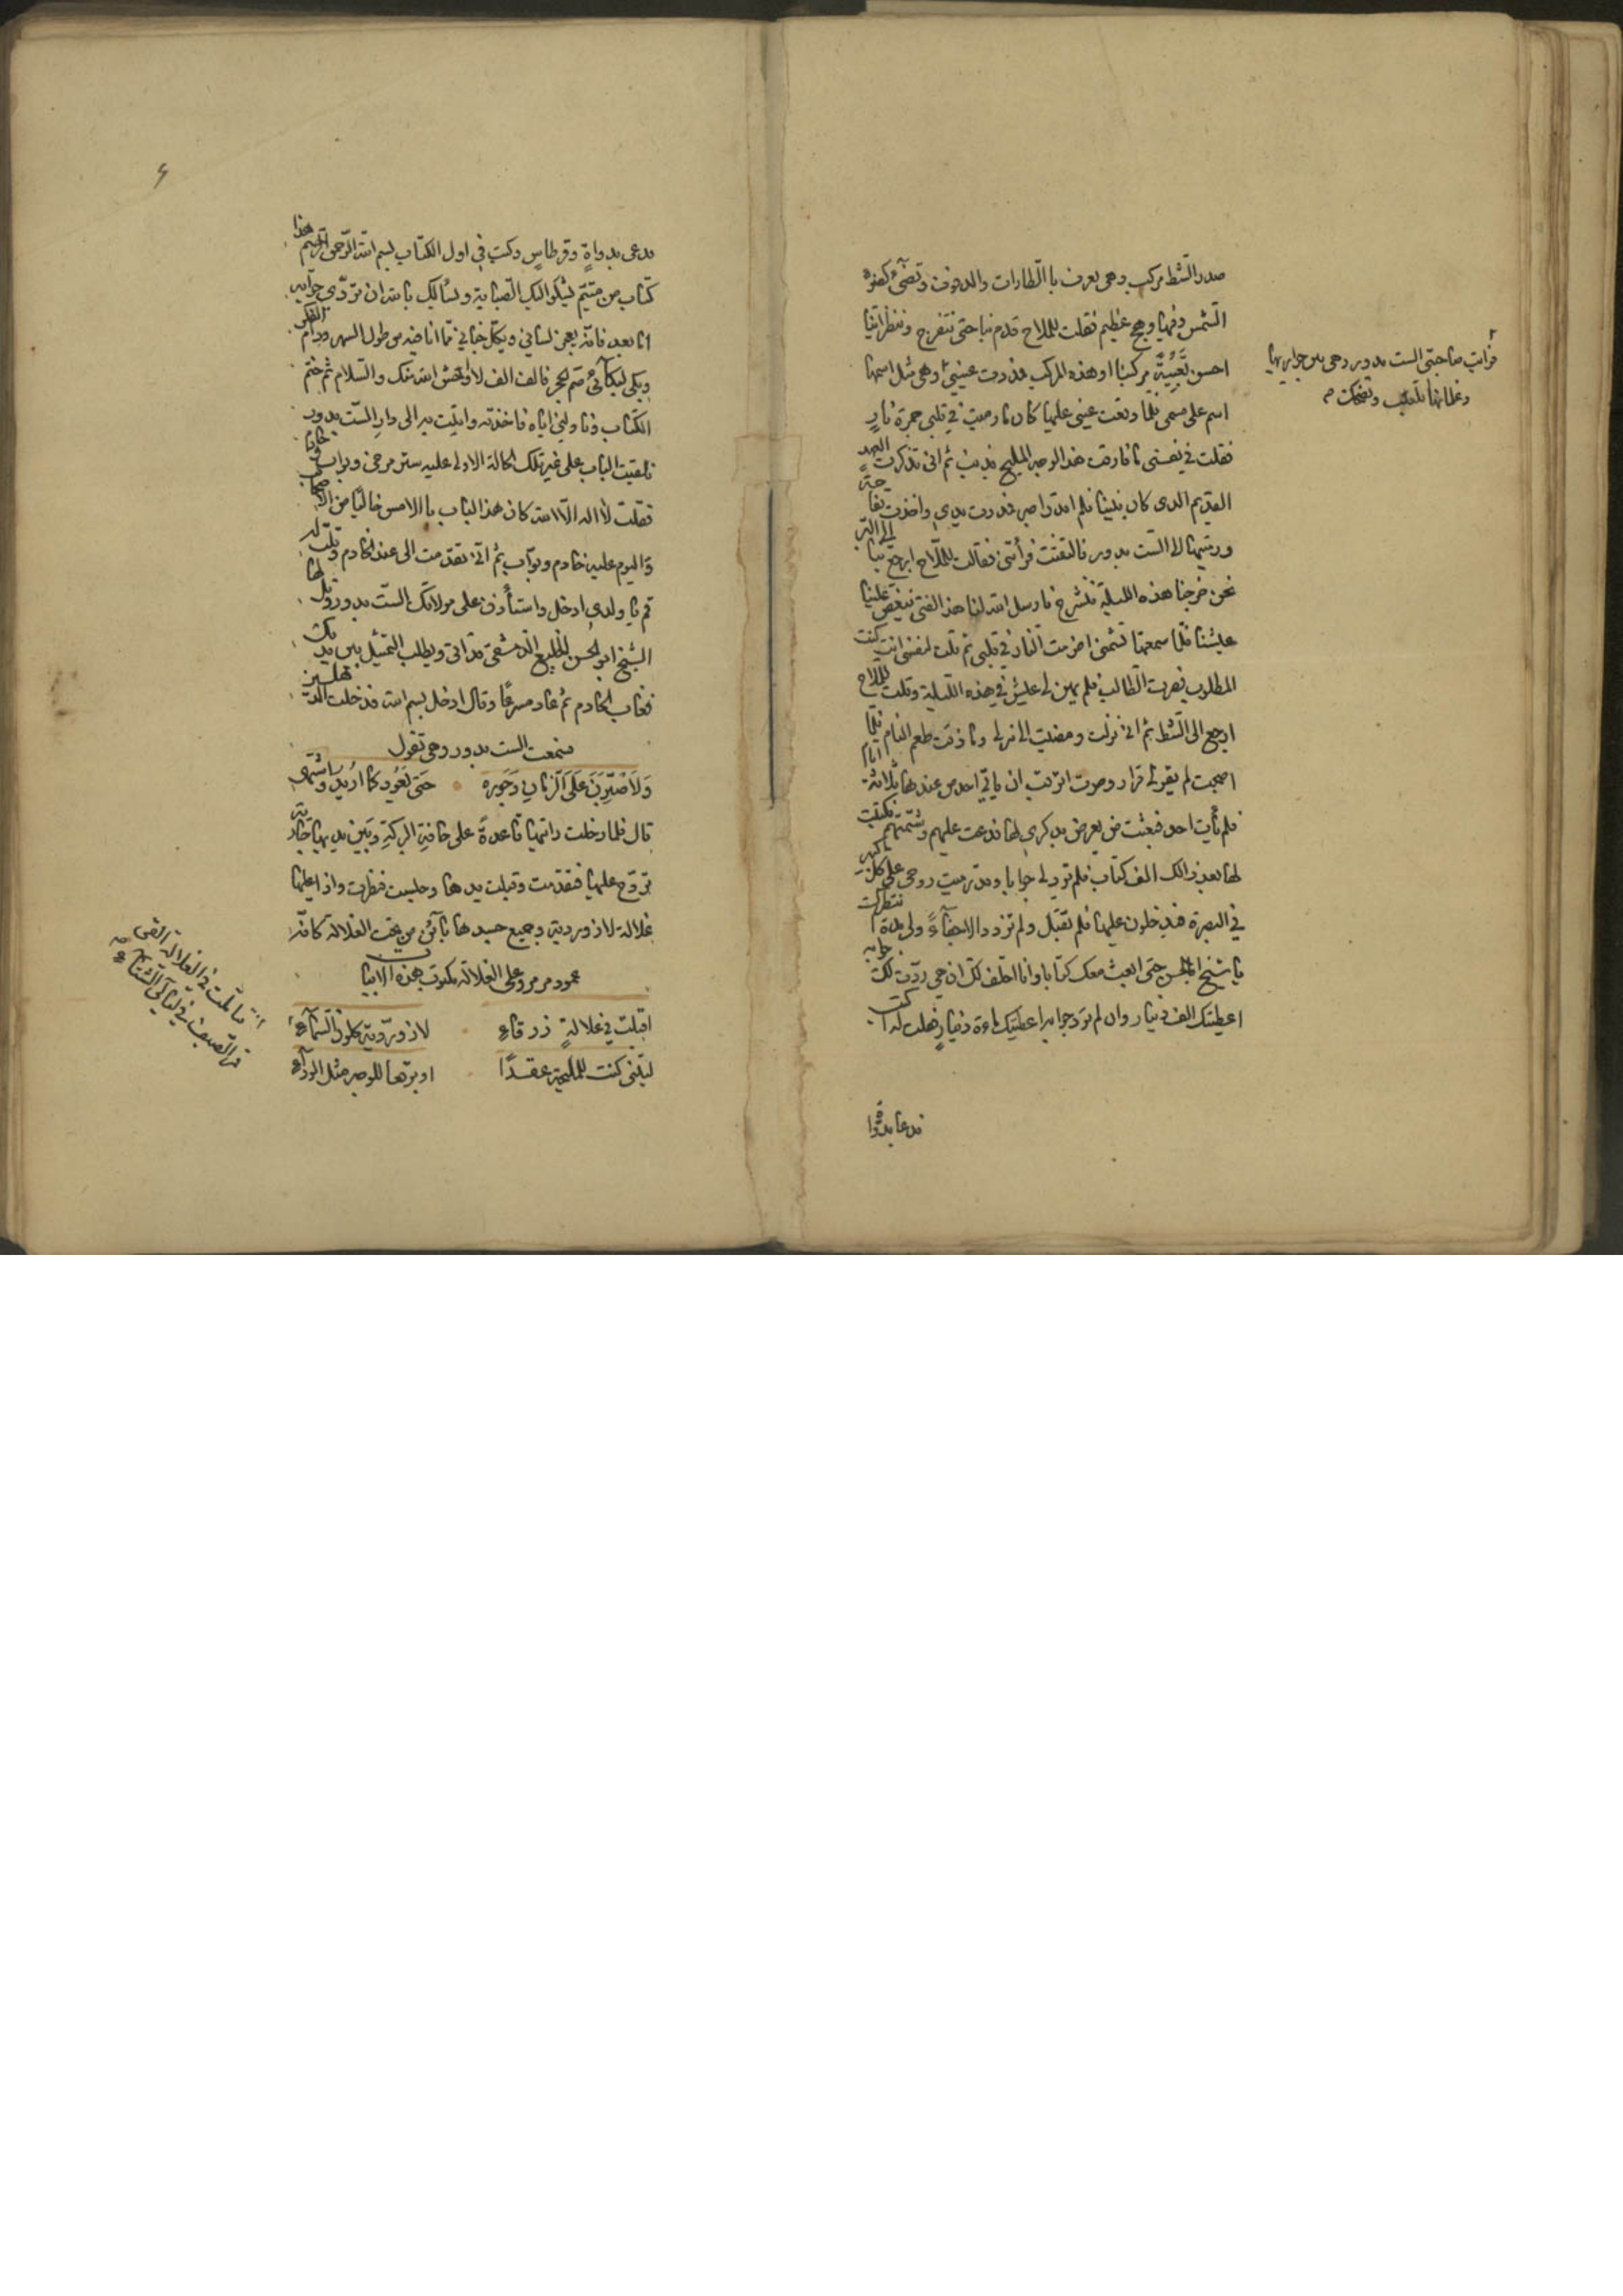 صدر الشط مركب وهي يعرف باالطارات والدفوف وتضيء كضوء
الشمس وفيها وهج عظيم فقلت للملاح قدم بنا حتى نتفرج وننظر اينا
احسن تعبية مركبنا او هذه المركب فمدرت عيني وهي مثل اسمها
فرايت صاحبتي الست بدور وهي بين جواريها
وغلمانها تلعب وتضحك صح
اسم على مسمى فلما وقعت عيني عليها كان نار رميت في قلبي جمرة نار
فقلت في نفسي ما فارقت هذا الوجه المليح بذنب ثم اني تذكرت العهد
القديم الذي كان بيننا فلم اقدر اصبر فمددت يدي واخذت تفاحة
ورميتها الا الست بدور فالتفتت فرأتني فقالت للملاح ارجع بنا الى البر
نحن خرجنا هذه الليلة ننشرح فارسل الله لنا هذا الفتى ينغص علينا
عيشنا فلما سمعتها تشتمني اضرمت النار في قلبي ثم قلت لنفسي انت كنت
المطلوب فصرت الطالب فلم يهين لي عيش في هذه الليلة وقلت للملاح
ارجع الى الشط ثم اني نزلت ومضيت الى منزلي وما ذقت طعم المنام فلما
اصبحت لم يقر لي قرار وصرت اترقب ان يأتي احد من عندها ثلاثة ايام
فلم يأت احد فبعثت من يعرض بذكري لها فدعت عليهم وشتمتهم فكتبت
لها بعد ذالك الف كتاب فلم ترد لي جوابا وقد رميت روحي على كل كبير
في البصرة فيدخلون عليها فلم تقبل ولم تزدد الا جفاءً ولي مدة انتظرك
يا شيخ ابا الحسن حتى ابعث معك كتابا وانا احلف لك ان هي ردت لك جوابه
اعطيتك الف دينار وان لم ترد جوابه اعطيتك ماءة دينار فقلت له اكتب
فدعا بدواة
فدعى بدواةٍ وقرطاسٍ وكتب في اول الكتاب بسم الله الرحمن الرحيم هذا
كتاب من متيم يشكو اليك الصبابة ويسألك بالله ان تردي جوابه
اما بعد فانه يعجز لساني ويكل جناني مما انا فيه من طول السهر ودوام الفكر
وبكى لبكائي صم الحجر فالف الف لا اوحش الله منك والسلام ثم ختم
الكتاب وناولني اياه فاخذته واتيت به الى دار الست بدور
فلقيت الباب على غير تلك الحالة الاولى عليه ستر مرخي وبواب وخادم
فقلت لا اله الا الله كان هذا الباب باالامس خاليًا من الاصحاب
واليوم عليه خادم وبواب ثم اني تقدمت الى عند الخادم وقلت له
قم يا ولدي ادخل واستأذن على مولاتك الست بدور وقل لها
الشيخ ابو الحسن الخليع الدمشقي قد اتى ويطلب التمثيل بين يديك
فغاب الخادم ثم عاد مسرعًا وقال ادخل بسم الله فدخلت الدهليز
فسمعت الست بدور وهي تقول
وَلَاَصْبِرَنَ عَلَى الزَمَانِ وَجَورِهِ حَتى يَعُودَ كما اُريدُ واشتهى
قال فلما دخلت رأيتها قاعدةً على حافة البركةِ وبين يديها جارية
تروّح عليها فتقدمت وقبلت يدها وجلست فنظرت واذا عليها
غلالة لازوردية وجميع جسدها بائن من تحت الغلالة كانه
عمود مرمر وعلى الغلالة مكتوب هذه الابيات
اقبلت في غلالةٍ زرقاءِ لازورّدية كلون السّماءِ
فتأملت في الغلالة القى
قمر الصيف في ليالي الشتاء صح
ليتني كنت للمليحة عقدًا او برقعا للوجه مثل الوراء